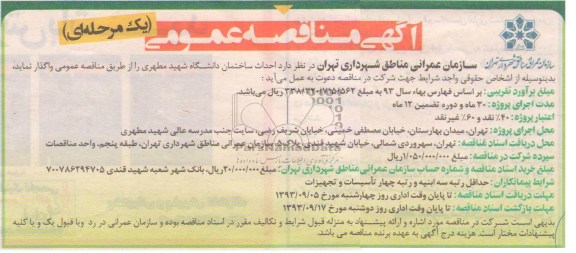 آگهی مناقصه عمومی (یک مرحله‌ای)
سازمان عمرانی مناطق شهرداری تهران
سازمان عمرانی مناطق شهرداری تهران در نظر دارد احداث ساختمان دانشگاه شهید مطهری را از طریق مناقصه عمومی واگذار نماید،
بدینوسیله از اشخاص حقوقی واجد شرایط جهت شرکت در مناقصه دعوت به عمل می‌آید:
مبلغ برآورد تقریبی: بر اساس فهارس بهاء سال ۹۳ به مبلغ ریال می‌باشد.
مدت اجرای پروژه: ۳۰ ماه و دوره تضمین ۱۲ ماه
اعتبار پروژه: ۴۰٪ نقد و ۶۰٪ غیر نقد
محل اجرای پروژه: تهران، میدان بهارستان، خیابان مصطفی خمینی، خیابان شریف رضی، سایت جنب مدرسه عالی شهید مطهری
محل دریافت اسناد مناقصه: تهران، سهروردی شمالی، خیابان شهید قندی، پلاک ۵، سازمان عمرانی مناطق شهرداری تهران، طبقه پنجم، واحد مناقصات
سپرده شرکت در مناقصه: مبلغ ریال
مبلغ خرید اسناد مناقصه و شماره حساب سازمان عمرانی مناطق شهرداری تهران: مبلغ ریال، بانک شهر شعبه شهید قندی ۷۰۰۷۸۶۲۹۴۷۰۵
شرایط پیمانکاران: حداقل رتبه سه ابنیه و رتبه چهار تأسیسات و تجهیزات
مهلت دریافت اسناد مناقصه: تا پایان وقت اداری روز چهارشنبه مورخ ۱۳۹۳/۰۹/۰۵
مهلت بازگشت اسناد مناقصه: تا پایان وقت اداری روز دوشنبه مورخ ۱۳۹۳/۰۹/۱۷
بدیهی است شرکت در مناقصه مورد اشاره و ارائه پیشنهاد به منزله قبول شرایط و تکالیف مقرر در اسناد مناقصه بوده و سازمان عمرانی در رد و یا قبول یک و یا کلیه
پیشنهادات مختار است. هزینه درج آگهی به عهده برنده مناقصه می باشد.